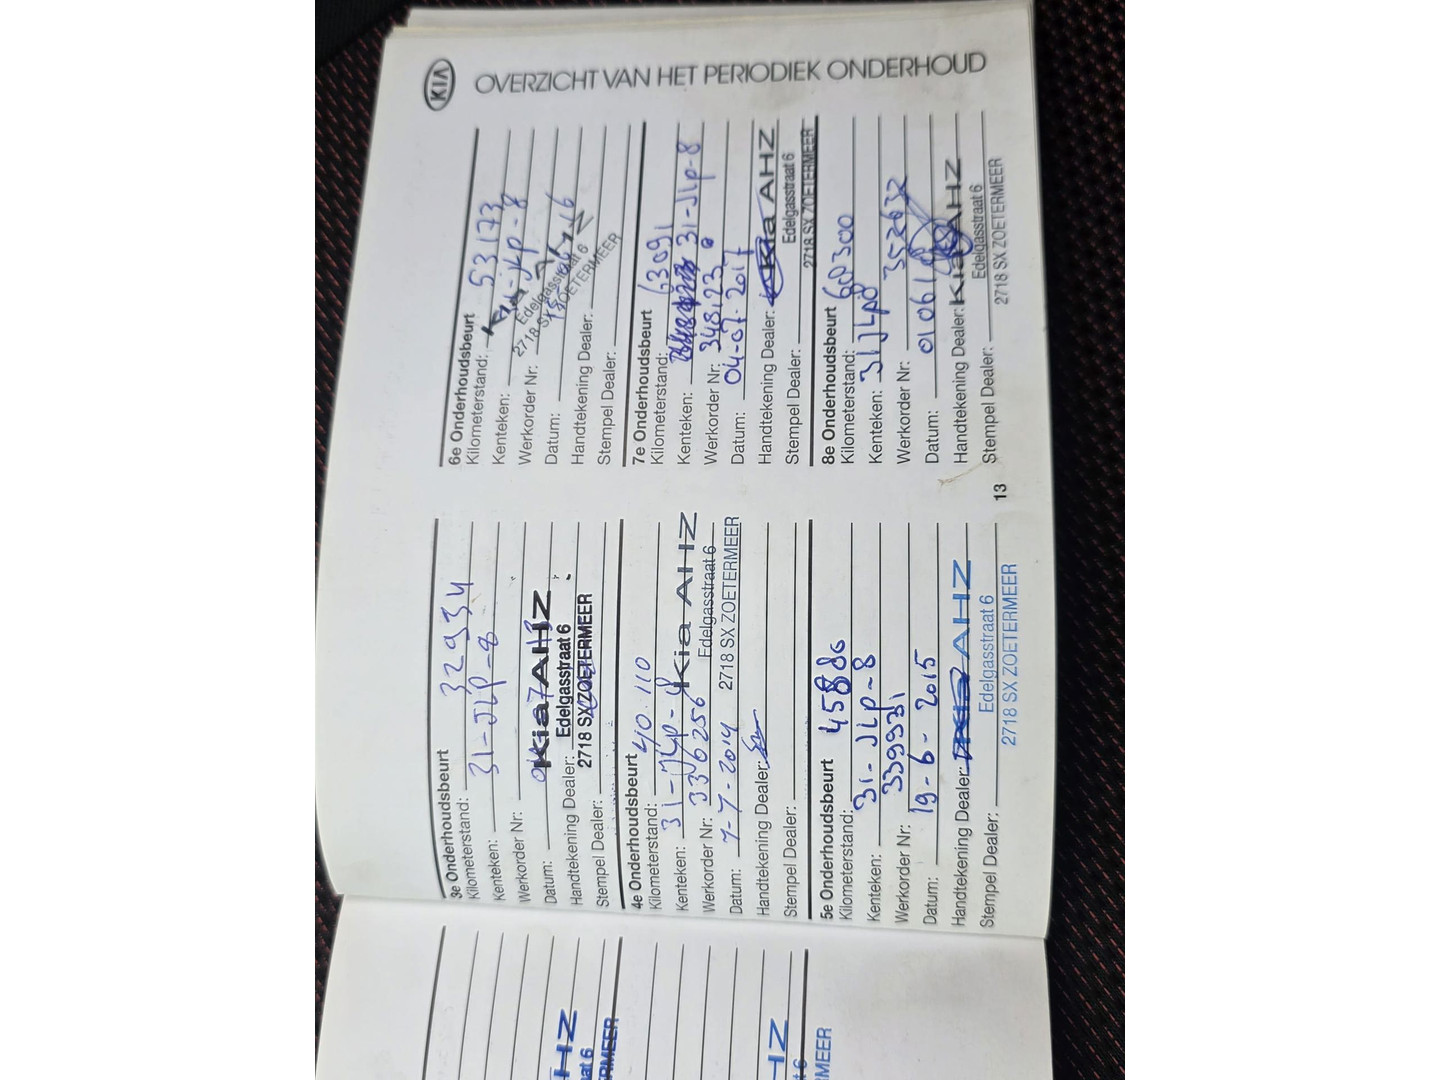 KIA OVERZICHT VAN HET PERIODIEK ONDERHOUD
3e Onderhoudsbeurt
Kilometerstand: 32934
Kenteken: 31-JLP-8
Werkorder Nr:
Datum:
Kia AHZ
Handtekening Dealer:
Edelgasstraat 6
Stempel Dealer:
2718 SX ZOETERMEER
4e Onderhoudsbeurt
Kilometerstand: 40 110
Kenteken: 31-JLP-8
Kia AHZ
Werkorder Nr: 336256
Edelgasstraat 6
Datum: 7-7-2014
2718 SX ZOETERMEER
Handtekening Dealer:
Stempel Dealer:
5e Onderhoudsbeurt
Kilometerstand: 45886
Kenteken: 31-JLP-8
Werkorder Nr: 339931
Datum: 19-6-2015
Handtekening Dealer: Kia AHZ
Stempel Dealer: Edelgasstraat 6
2718 SX ZOETERMEER
6e Onderhoudsbeurt
Kilometerstand: 53173
Kenteken:
Kia AHZ
Werkorder Nr:
Edelgasstraat 6
Datum:
2718 SX ZOETERMEER
Handtekening Dealer:
Stempel Dealer:
7e Onderhoudsbeurt
Kilometerstand: 63091
Kenteken: 31-JLP-8
Werkorder Nr: 348123
Datum: 04-07-2017
Handtekening Dealer: Kia AHZ
Stempel Dealer: Edelgasstraat 6
2718 SX ZOETERMEER
8e Onderhoudsbeurt
Kilometerstand:
Kenteken: 31JLP8
Werkorder Nr: 352632
Datum:
Handtekening Dealer: Kia AHZ
Stempel Dealer: Edelgasstraat 6
2718 SX ZOETERMEER
13